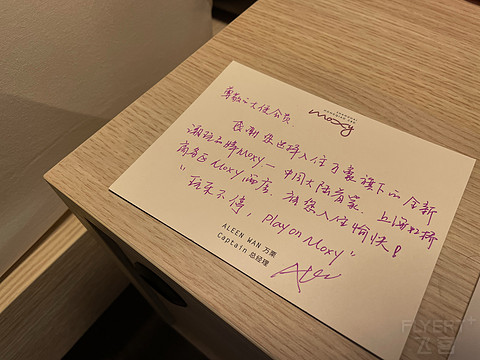 moxy
尊敬的大使会员
感谢您选择入住万豪旗下的全新
潮玩品牌Moxy—中国大陆首家上海虹桥
商务区Moxy酒店。祝您入住愉快！
"玩乐不停，Play on Moxy"
ALEEN WAN 万栗
Captain 总经理
FLYERT